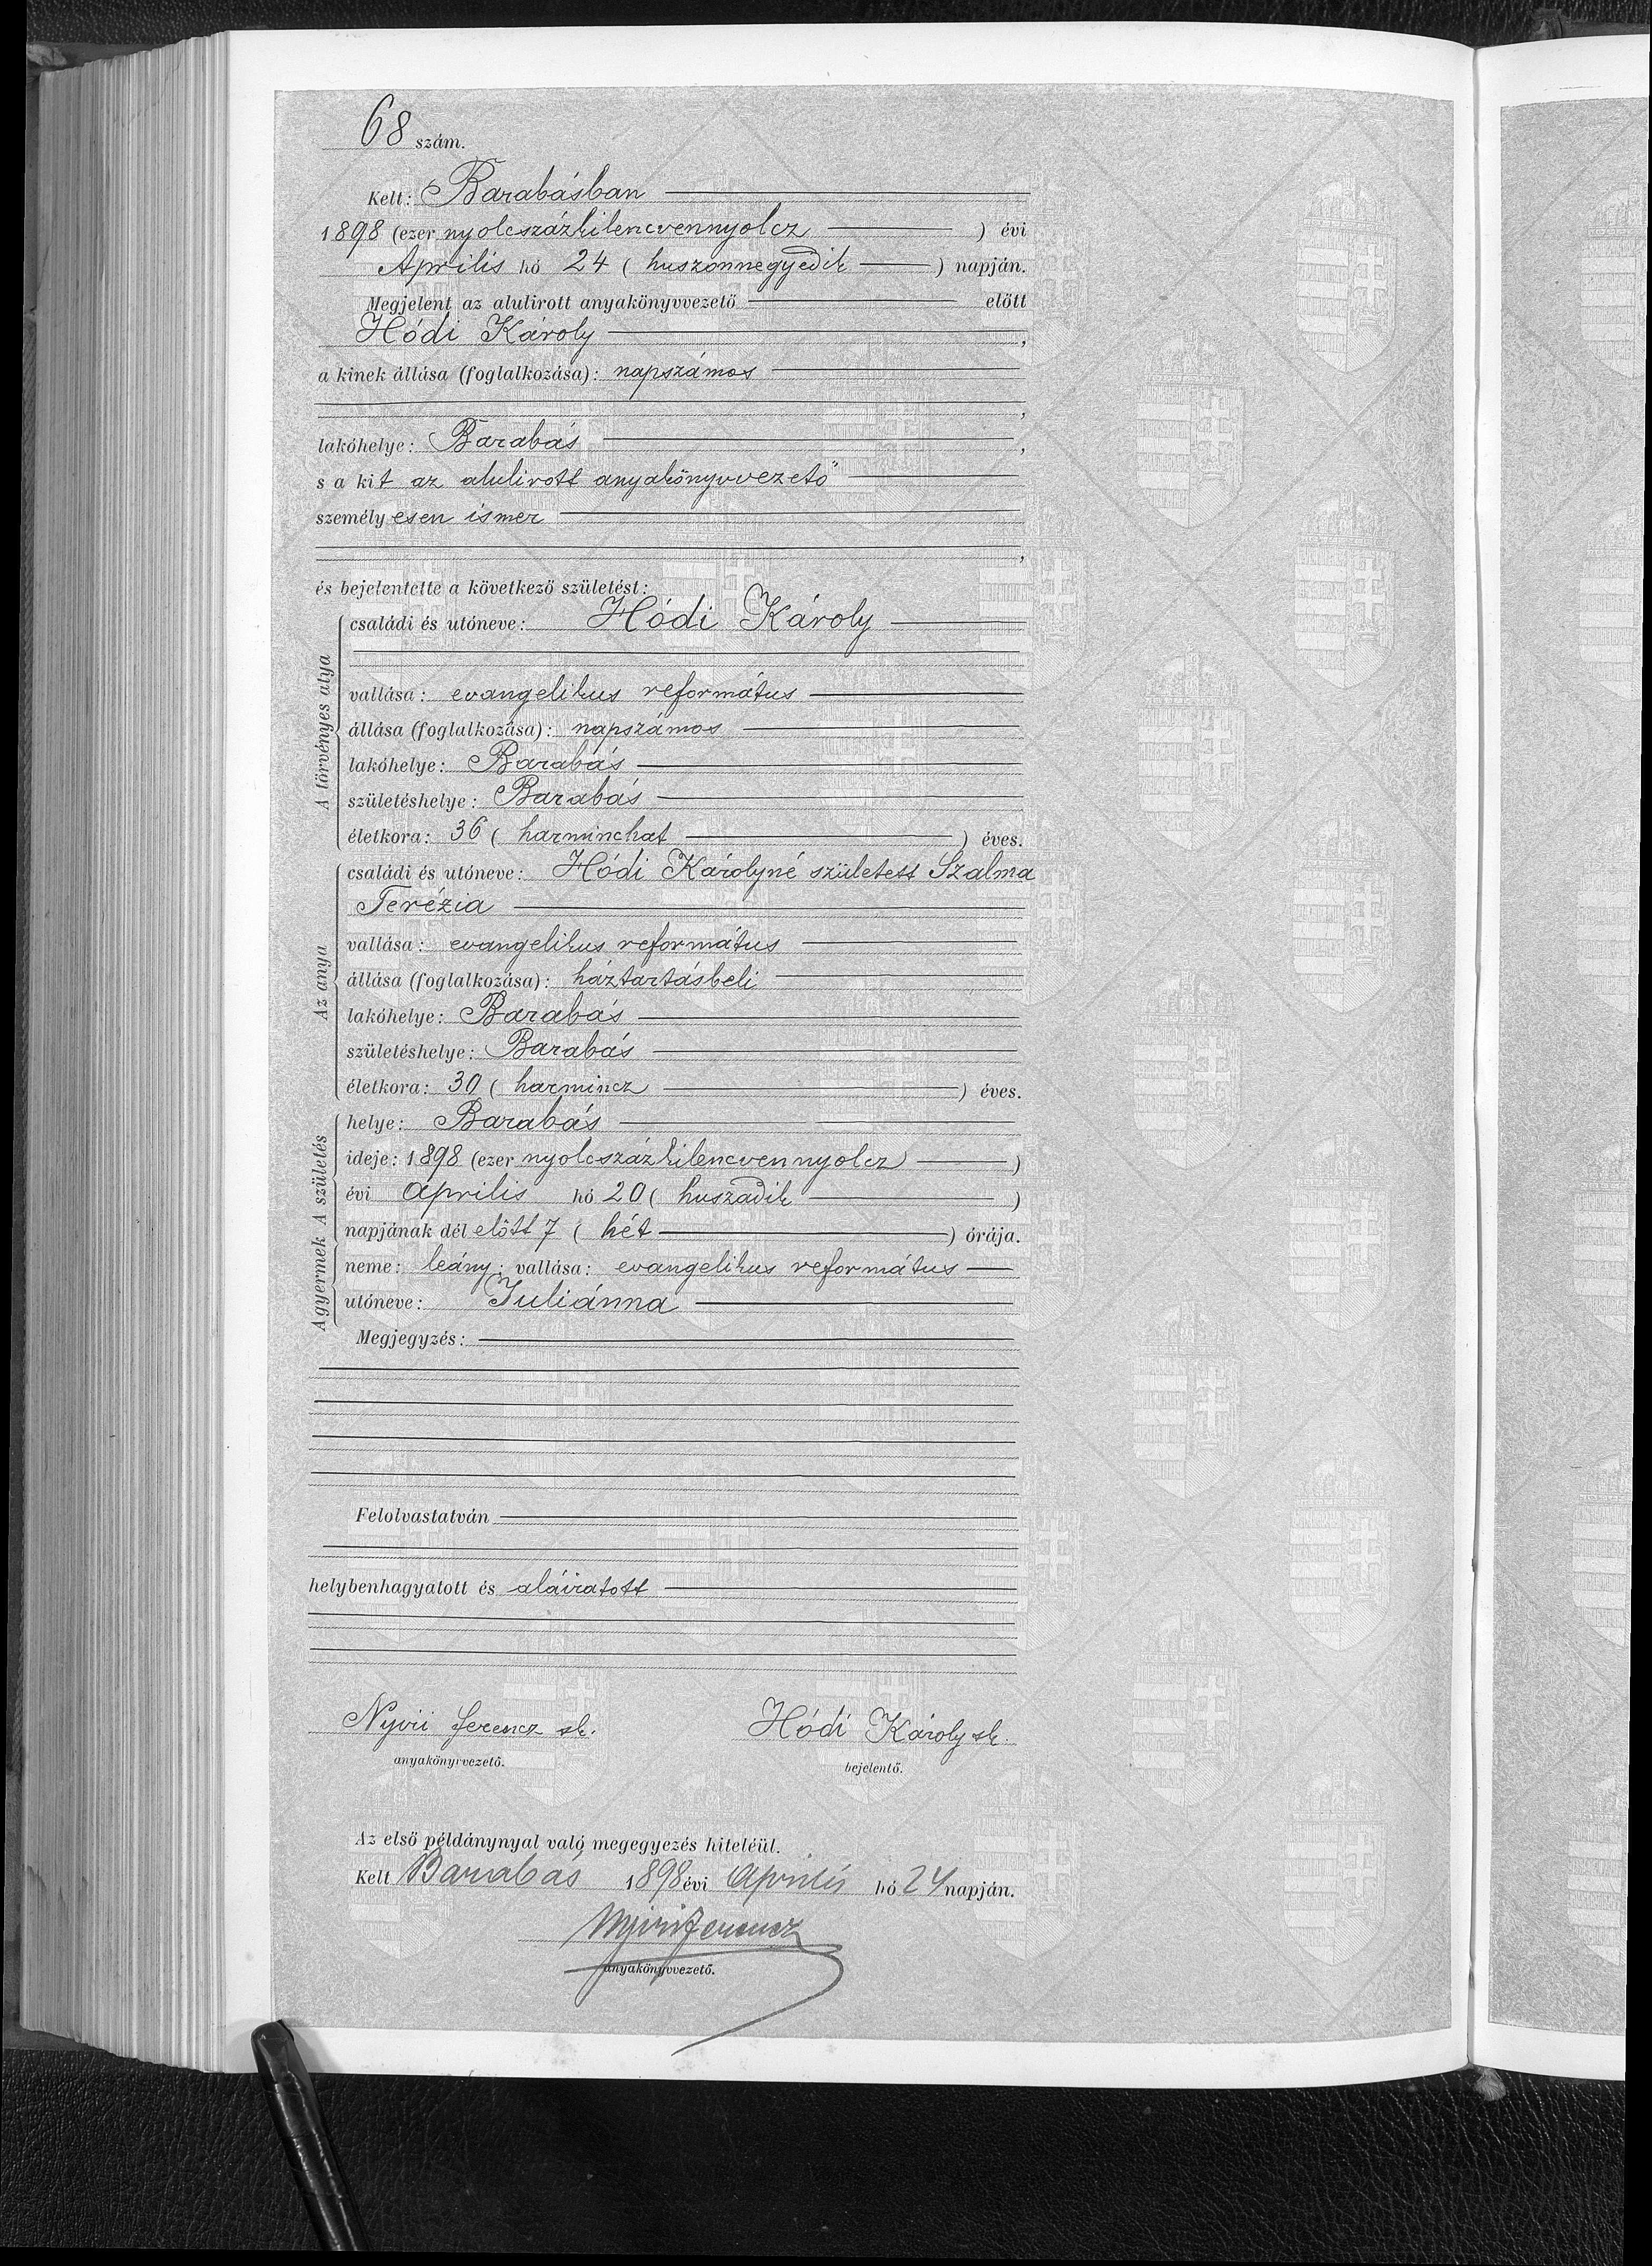 68 szám.
Kelt: Barabásban
1898 (ezer nyolcszázkilencvennyolcz ) évi
Április hó 24 ( huszonnegyedik ) napján.
Megjelent az alulirott anyakönyvvezető előtt
Hódi Károly ,
a kinek állása (foglalkozása): napszámos
,
lakóhelye: Barabás ,
s a kit az alulirott anyakönyvvezető
személyesen ismer
,
és bejelentette a következő születést:
A törvényes atya
családi és utóneve: Hódi Károly
vallása: evangelikus református
állása (foglalkozása): napszámos
lakóhelye: Barabás
születéshelye: Barabás
életkora: 36 ( harminchat ) éves.
Az anya
családi és utóneve: Hódi Károlyné született Szalma
Terézia
vallása: evangelikus református
állása (foglalkozása): háztartásbeli
lakóhelye: Barabás
születéshelye: Barabás
életkora: 30 ( harmincz ) éves.
A születés
helye: Barabás
ideje: 1898 (ezer nyolcszázkilencvennyolcz )
évi április hó 20 ( huszadik )
napjának dél előtt 7 ( hét ) órája.
A gyermek
neme: leány; vallása: evangelikus református
utóneve: Juliánna
Megjegyzés:
Felolvastatván
helybenhagyatott és aláiratott
Nyiri Ferencz sk. Hódi Károly sk.
anyakönyvvezető. bejelentő.
Az első példánynyal való megegyezés hiteléül.
Kelt Barabás 1898 évi április hó 24 napján.
Nyiri Ferencz
anyakönyvvezető.